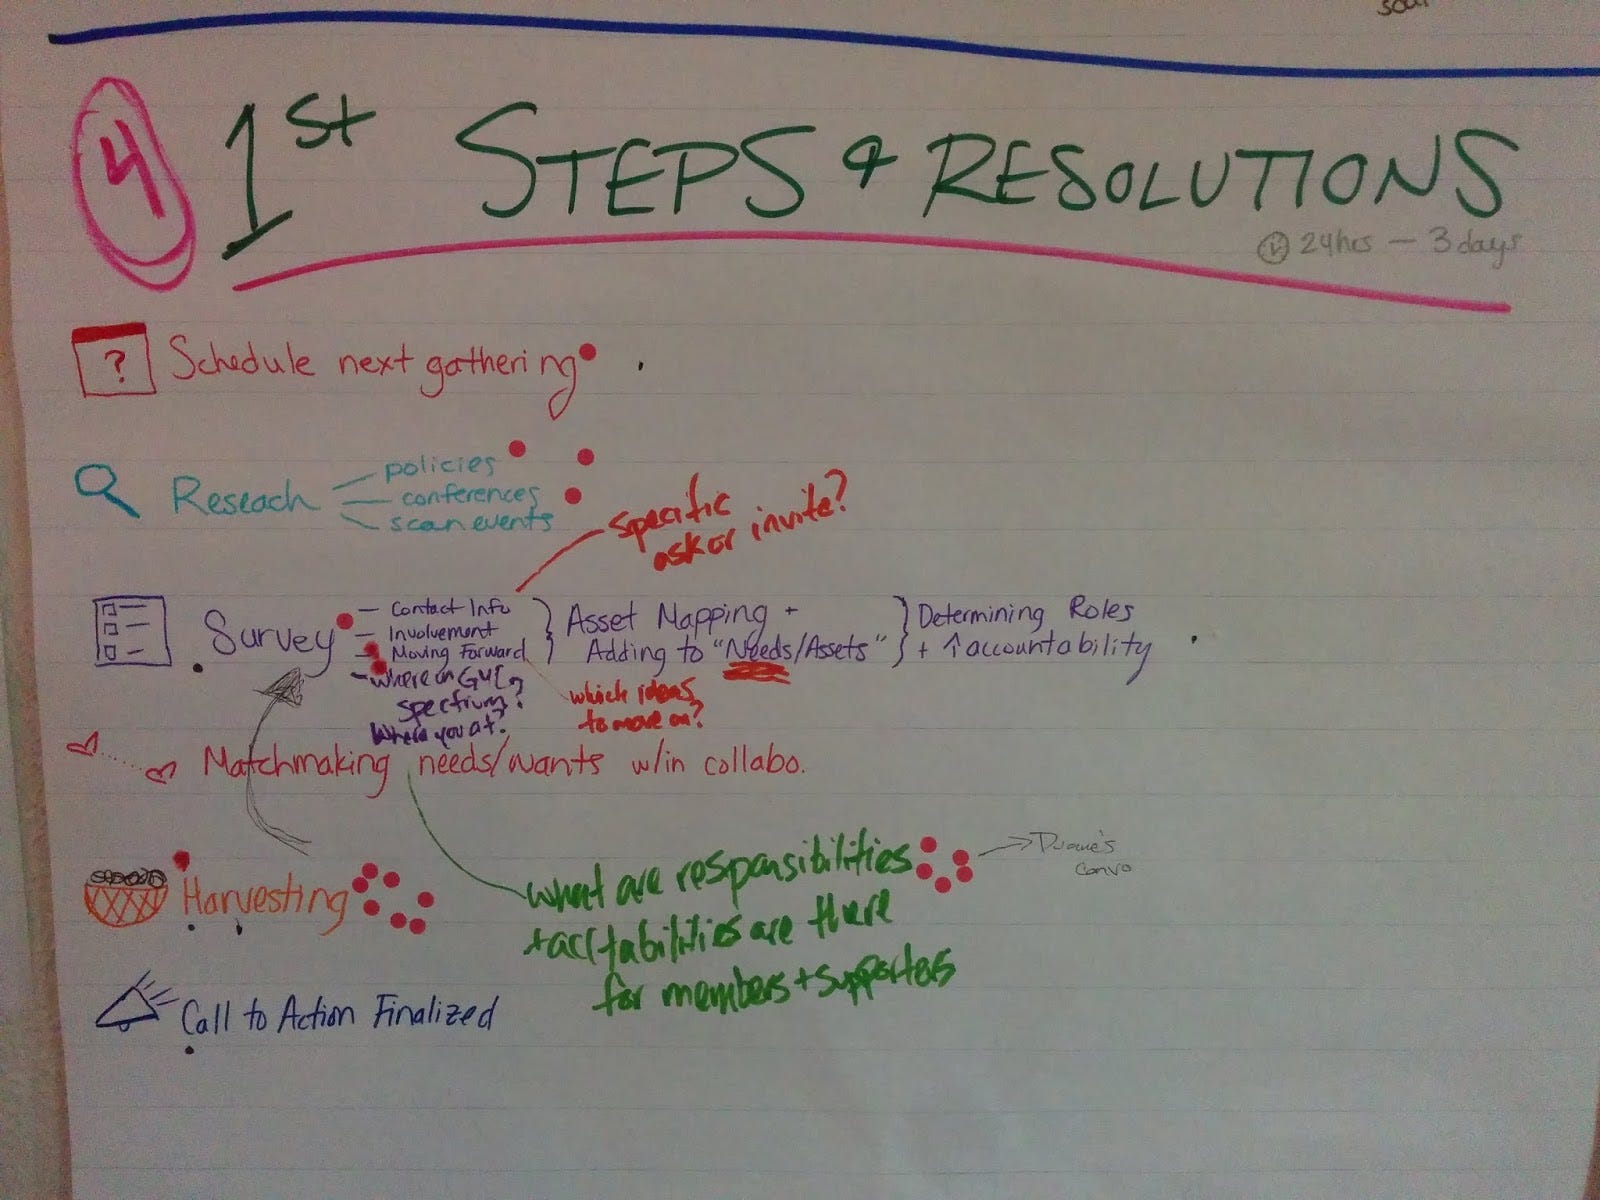 4
1st STEPS & RESOLUTIONS
24hrs — 3 days
? Schedule next gathering
Reseach
policies
conferences
scan events
specific
ask or invite?
Survey
— Contact Info
— Involvement
— Moving Forward
- Where on
spectrum?
Where you at?
Asset Mapping +
Adding to "Needs/Assets"
Determining Roles
+ ↑accountability
which ideas
to move on?
Matchmaking needs/wants w/in collabo.
Harvesting
what are responsibilities
+ acctabilities are there
for members + supporters
Duane's
convo
Call to Action Finalized